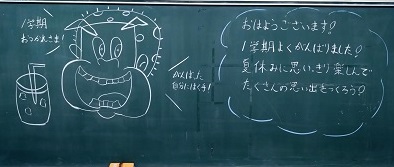 1学期
おつかれさま！
がんばった
自分にはくす！
おはようございます！
1学期よくがんばりました！
夏休みに思いっきり楽しんで
たくさんの思い出をつくろう！